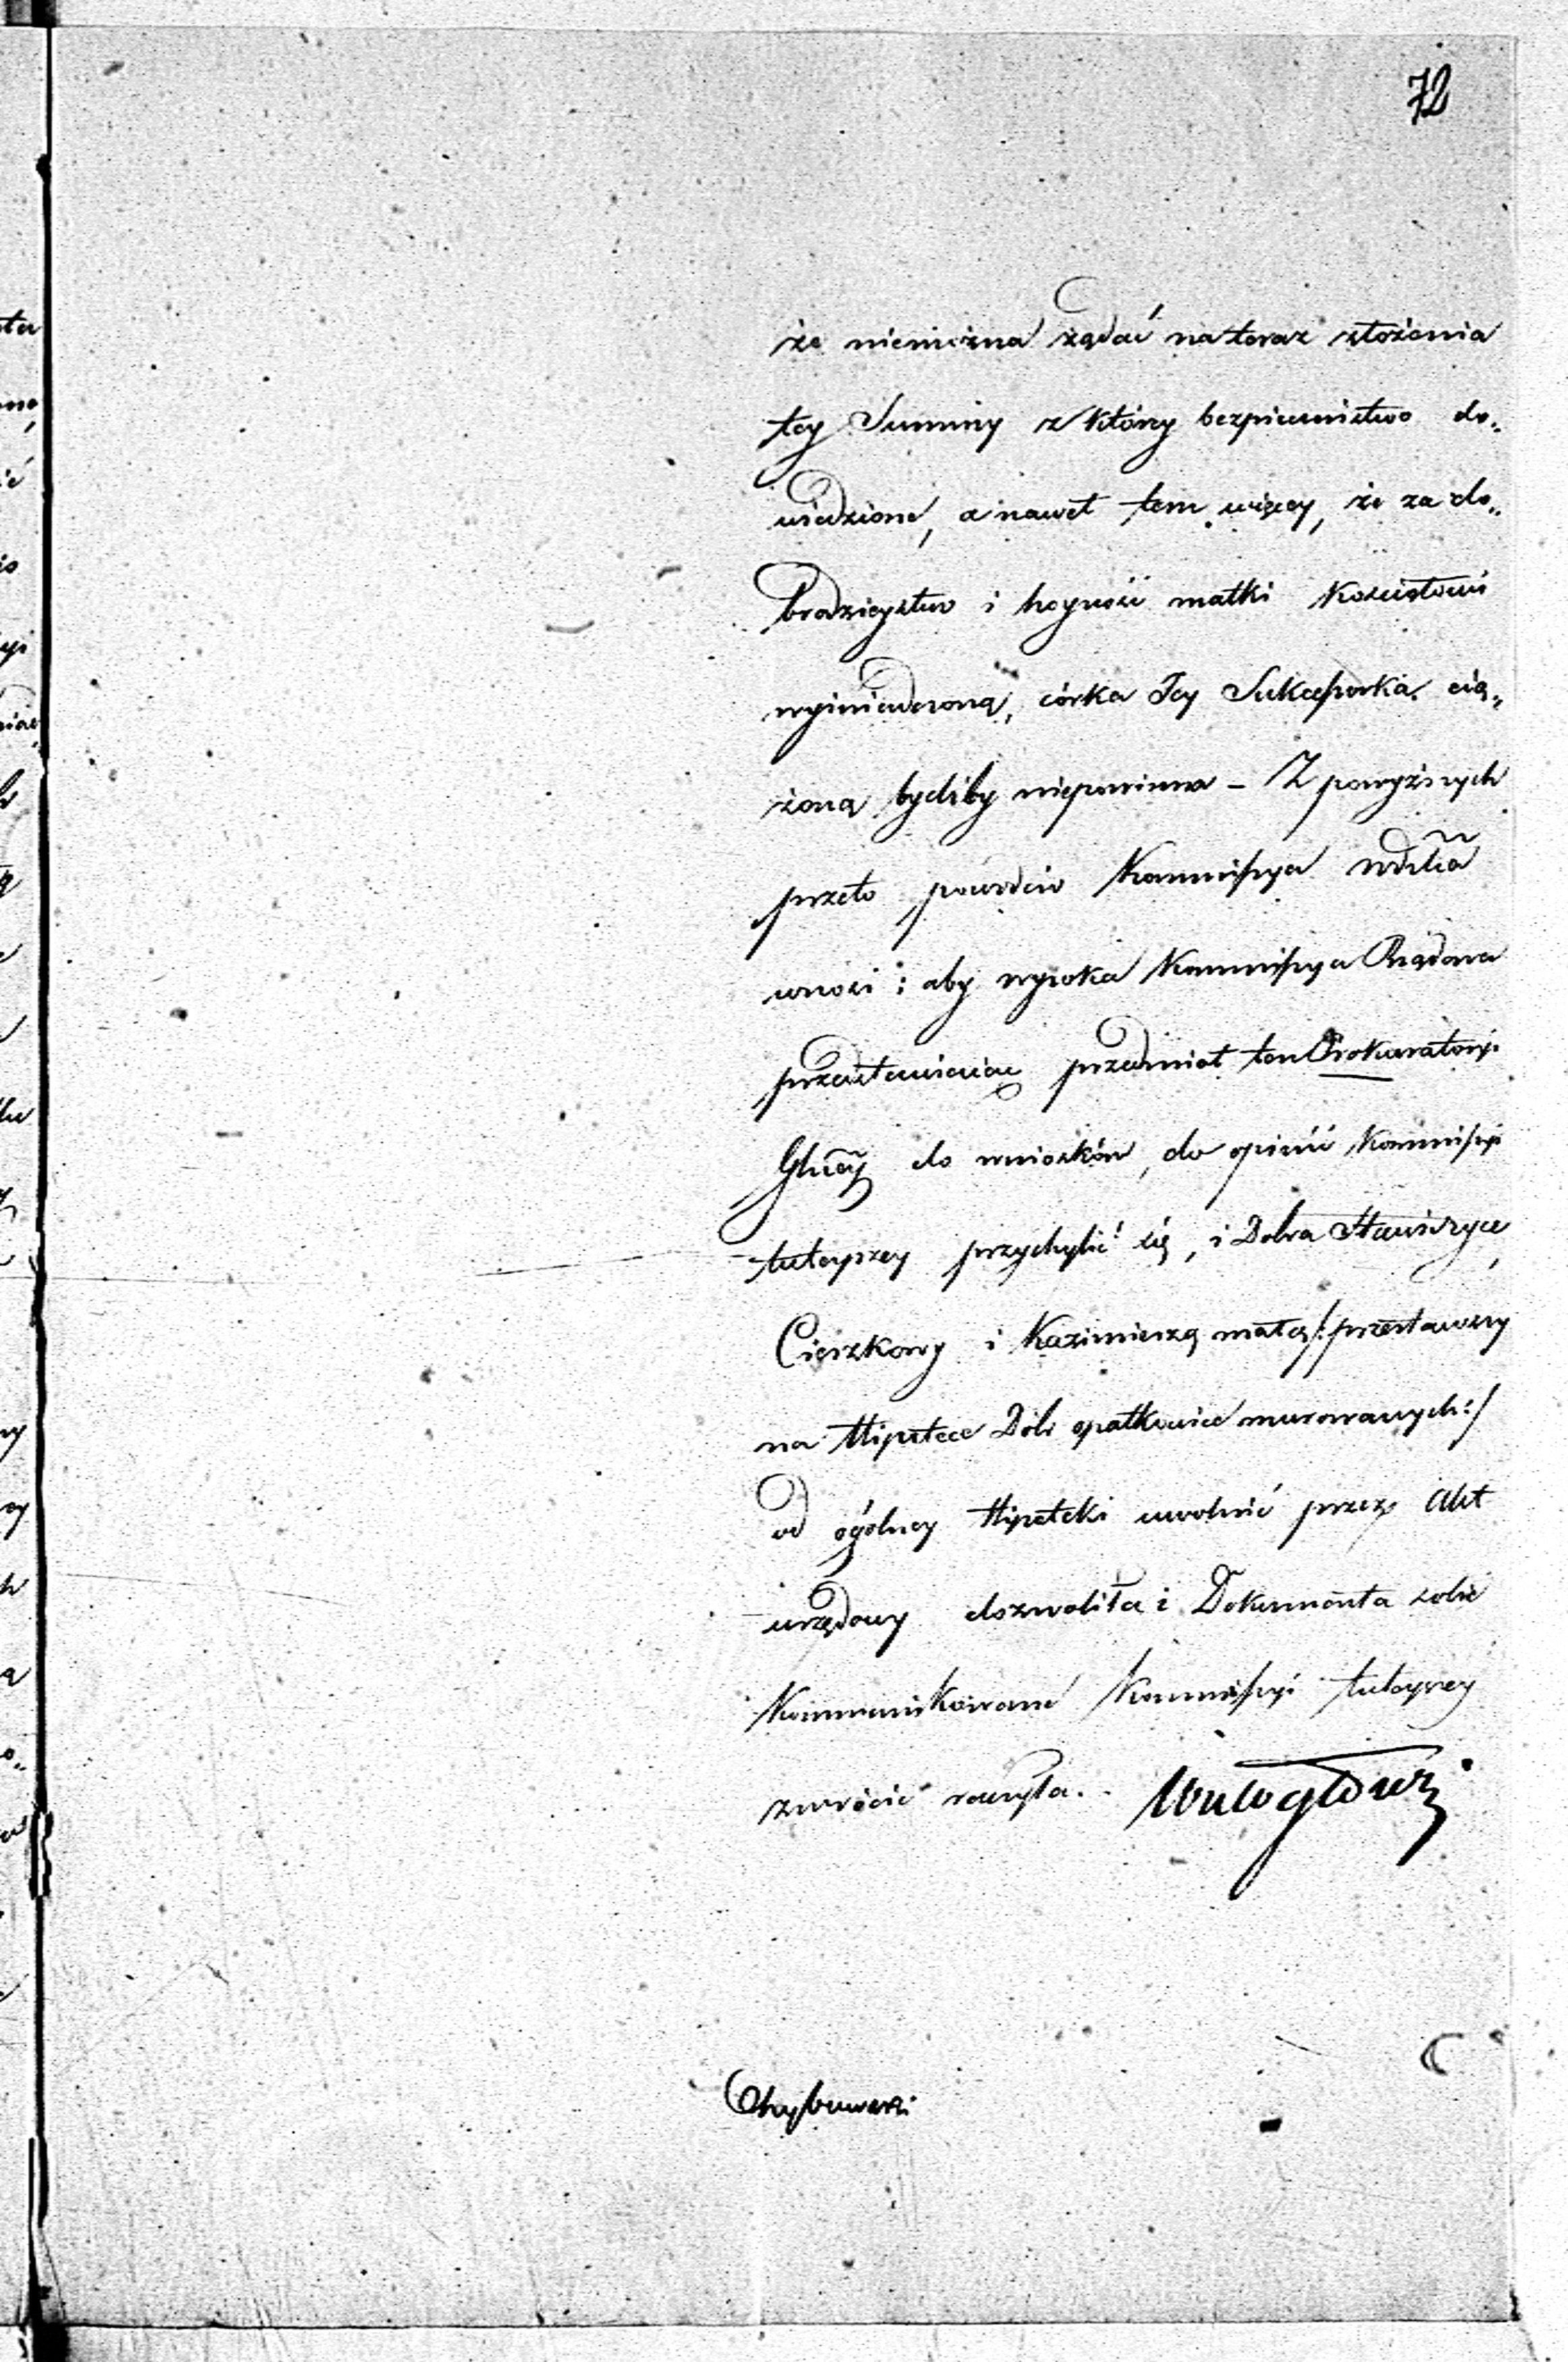 72
że niemożna żądać na teraz złożenia
tey Summy z któréy bezpieczeństwo do„
wiedzione, a nawet tem więcey, że za do„
brodzieystwo i hoyność matki Kościołowi
wyświadczoną, córka Jey Sukcessorka cią„
żoną bydźby niepowinna – Z powyższych
przeto powodów Kommissya
wnosi: aby wysoka Kommissya Rządowa
przedstawiaiąc przedmiot ten Prokuratoryi
do wniosków, do opinii Kommissyi
tuteyszey przychylić się, i Dobra Stawiszyce,
Cieszkowy i Kazimierzą małą /:przestawszy
na Hipotece Dóbr opatkowice murowanych:/
od ogólney Hipoteki uwolnić przez Akt
urzędowy dozwoliła i Dokumenta sobie
Kommunikowane Kommissyi tuteyszey
zwrócić raczyła.